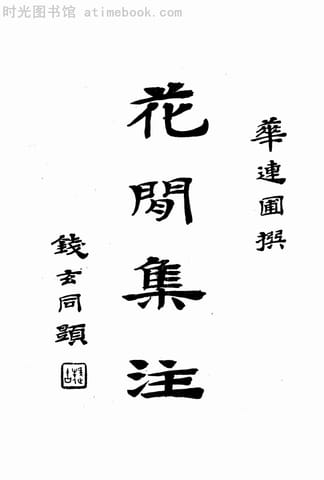 时光图书馆 atimebook.com
華連圃撰
花間集注
錢玄同題